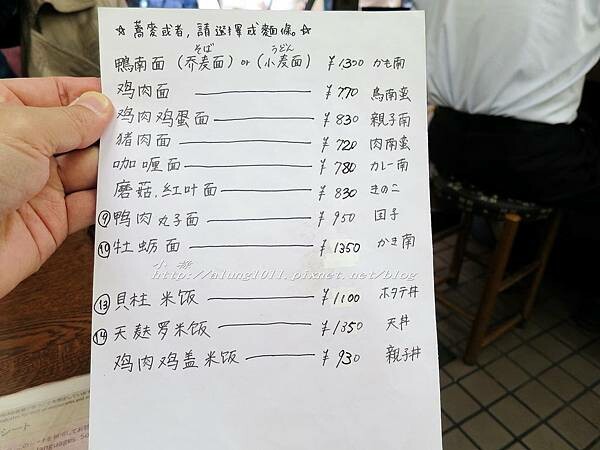 ☆蕎麦或者,請选擇或麵條☆
そば うどん
鴨南面 (乔麦面) or (小麦面) ¥1300 かも南
鸡肉面 ¥770 鳥南蛮
鸡肉鸡蛋面 ¥830 親子南
猪肉面 ¥720 肉南蛮
咖喱面 ¥780 カレー南
蘑菇,红叶面 ¥830 きのこ
⑨ 鸭肉丸子面 ¥950 团子
⑩ 牡蛎面 ¥1350 かき南
小雅
http://alung1011.pixnet.net/blog
⑬ 貝柱 米饭 ¥1100 ホタテ丼
⑭ 天麸罗米饭 ¥1350 天丼
鸡肉鸡盖米饭 ¥930 親子丼
シート